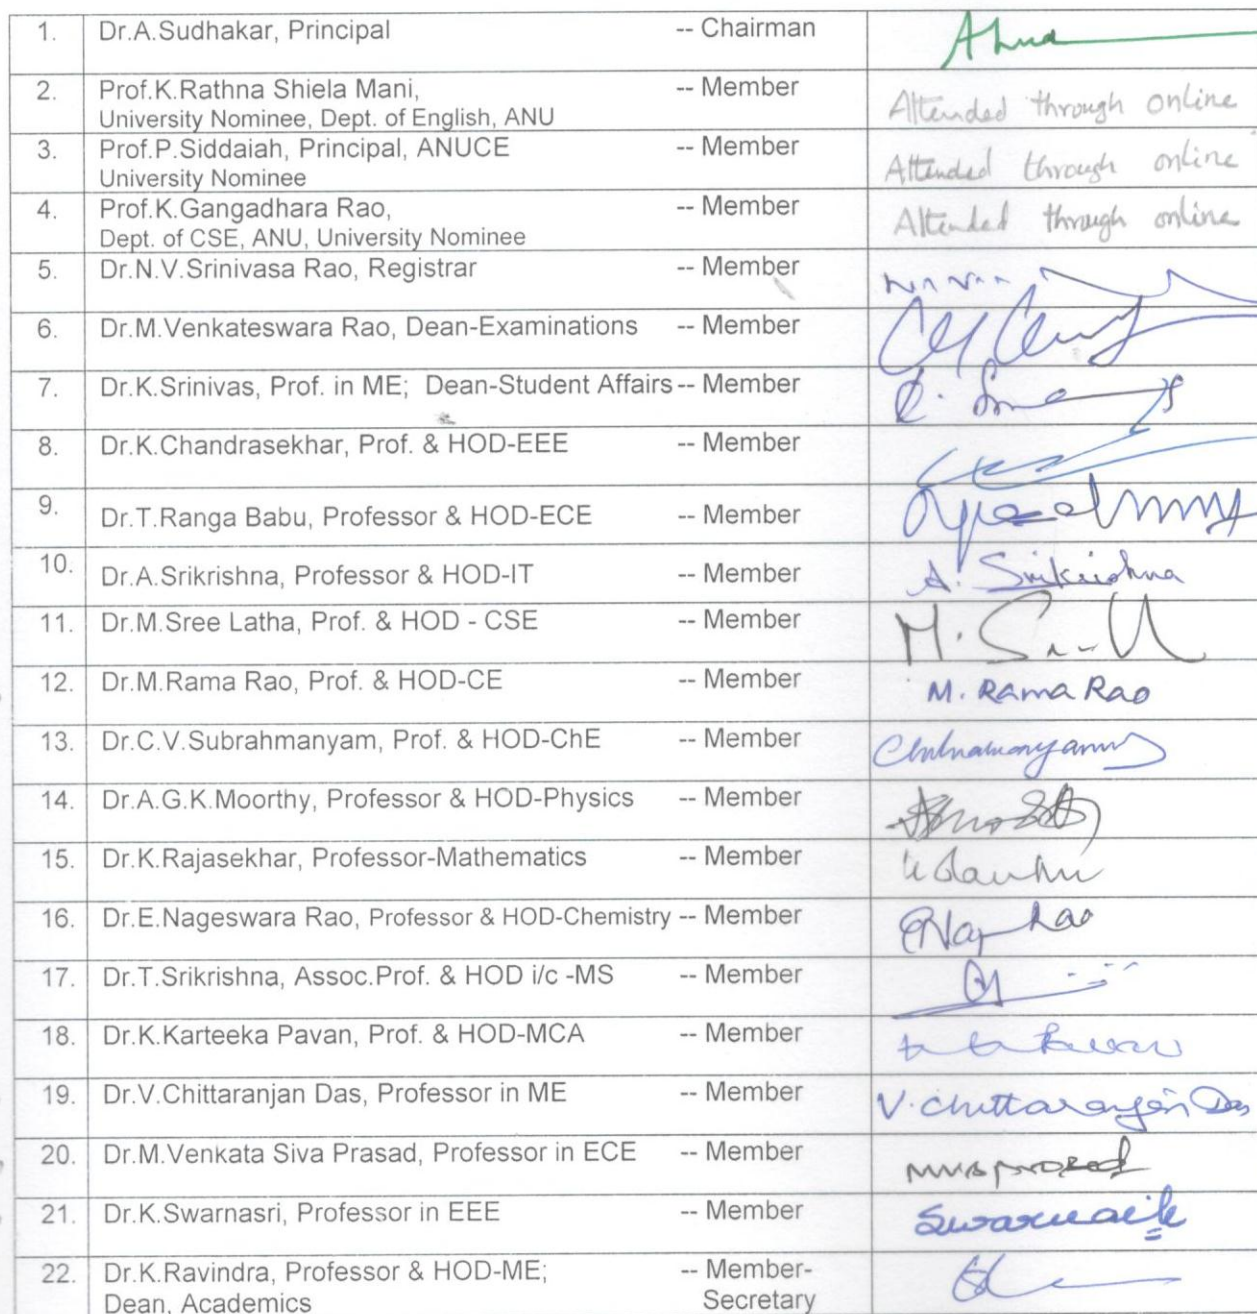 1. Dr.A.Sudhakar, Principal -- Chairman
2. Prof.K.Rathna Shiela Mani, -- Member Attended through online
University Nominee, Dept. of English, ANU
3. Prof.P.Siddaiah, Principal, ANUCE -- Member Attended through online
University Nominee
4. Prof.K.Gangadhara Rao, -- Member Attended through online
Dept. of CSE, ANU, University Nominee
5. Dr.N.V.Srinivasa Rao, Registrar -- Member
6. Dr.M.Venkateswara Rao, Dean-Examinations -- Member
7. Dr.K.Srinivas, Prof. in ME; Dean-Student Affairs -- Member
8. Dr.K.Chandrasekhar, Prof. & HOD-EEE -- Member
9. Dr.T.Ranga Babu, Professor & HOD-ECE -- Member
10. Dr.A.Srikrishna, Professor & HOD-IT -- Member A. Srikrishna
11. Dr.M.Sree Latha, Prof. & HOD - CSE -- Member
12. Dr.M.Rama Rao, Prof. & HOD-CE -- Member M. Rama Rao
13. Dr.C.V.Subrahmanyam, Prof. & HOD-ChE -- Member
14. Dr.A.G.K.Moorthy, Professor & HOD-Physics -- Member
15. Dr.K.Rajasekhar, Professor-Mathematics -- Member
16. Dr.E.Nageswara Rao, Professor & HOD-Chemistry -- Member
17. Dr.T.Srikrishna, Assoc.Prof. & HOD i/c -MS -- Member
18. Dr.K.Karteeka Pavan, Prof. & HOD-MCA -- Member
19. Dr.V.Chittaranjan Das, Professor in ME -- Member V. Chittaranjan Das
20. Dr.M.Venkata Siva Prasad, Professor in ECE -- Member
21. Dr.K.Swarnasri, Professor in EEE -- Member
22. Dr.K.Ravindra, Professor & HOD-ME; -- Member-
Dean, Academics Secretary